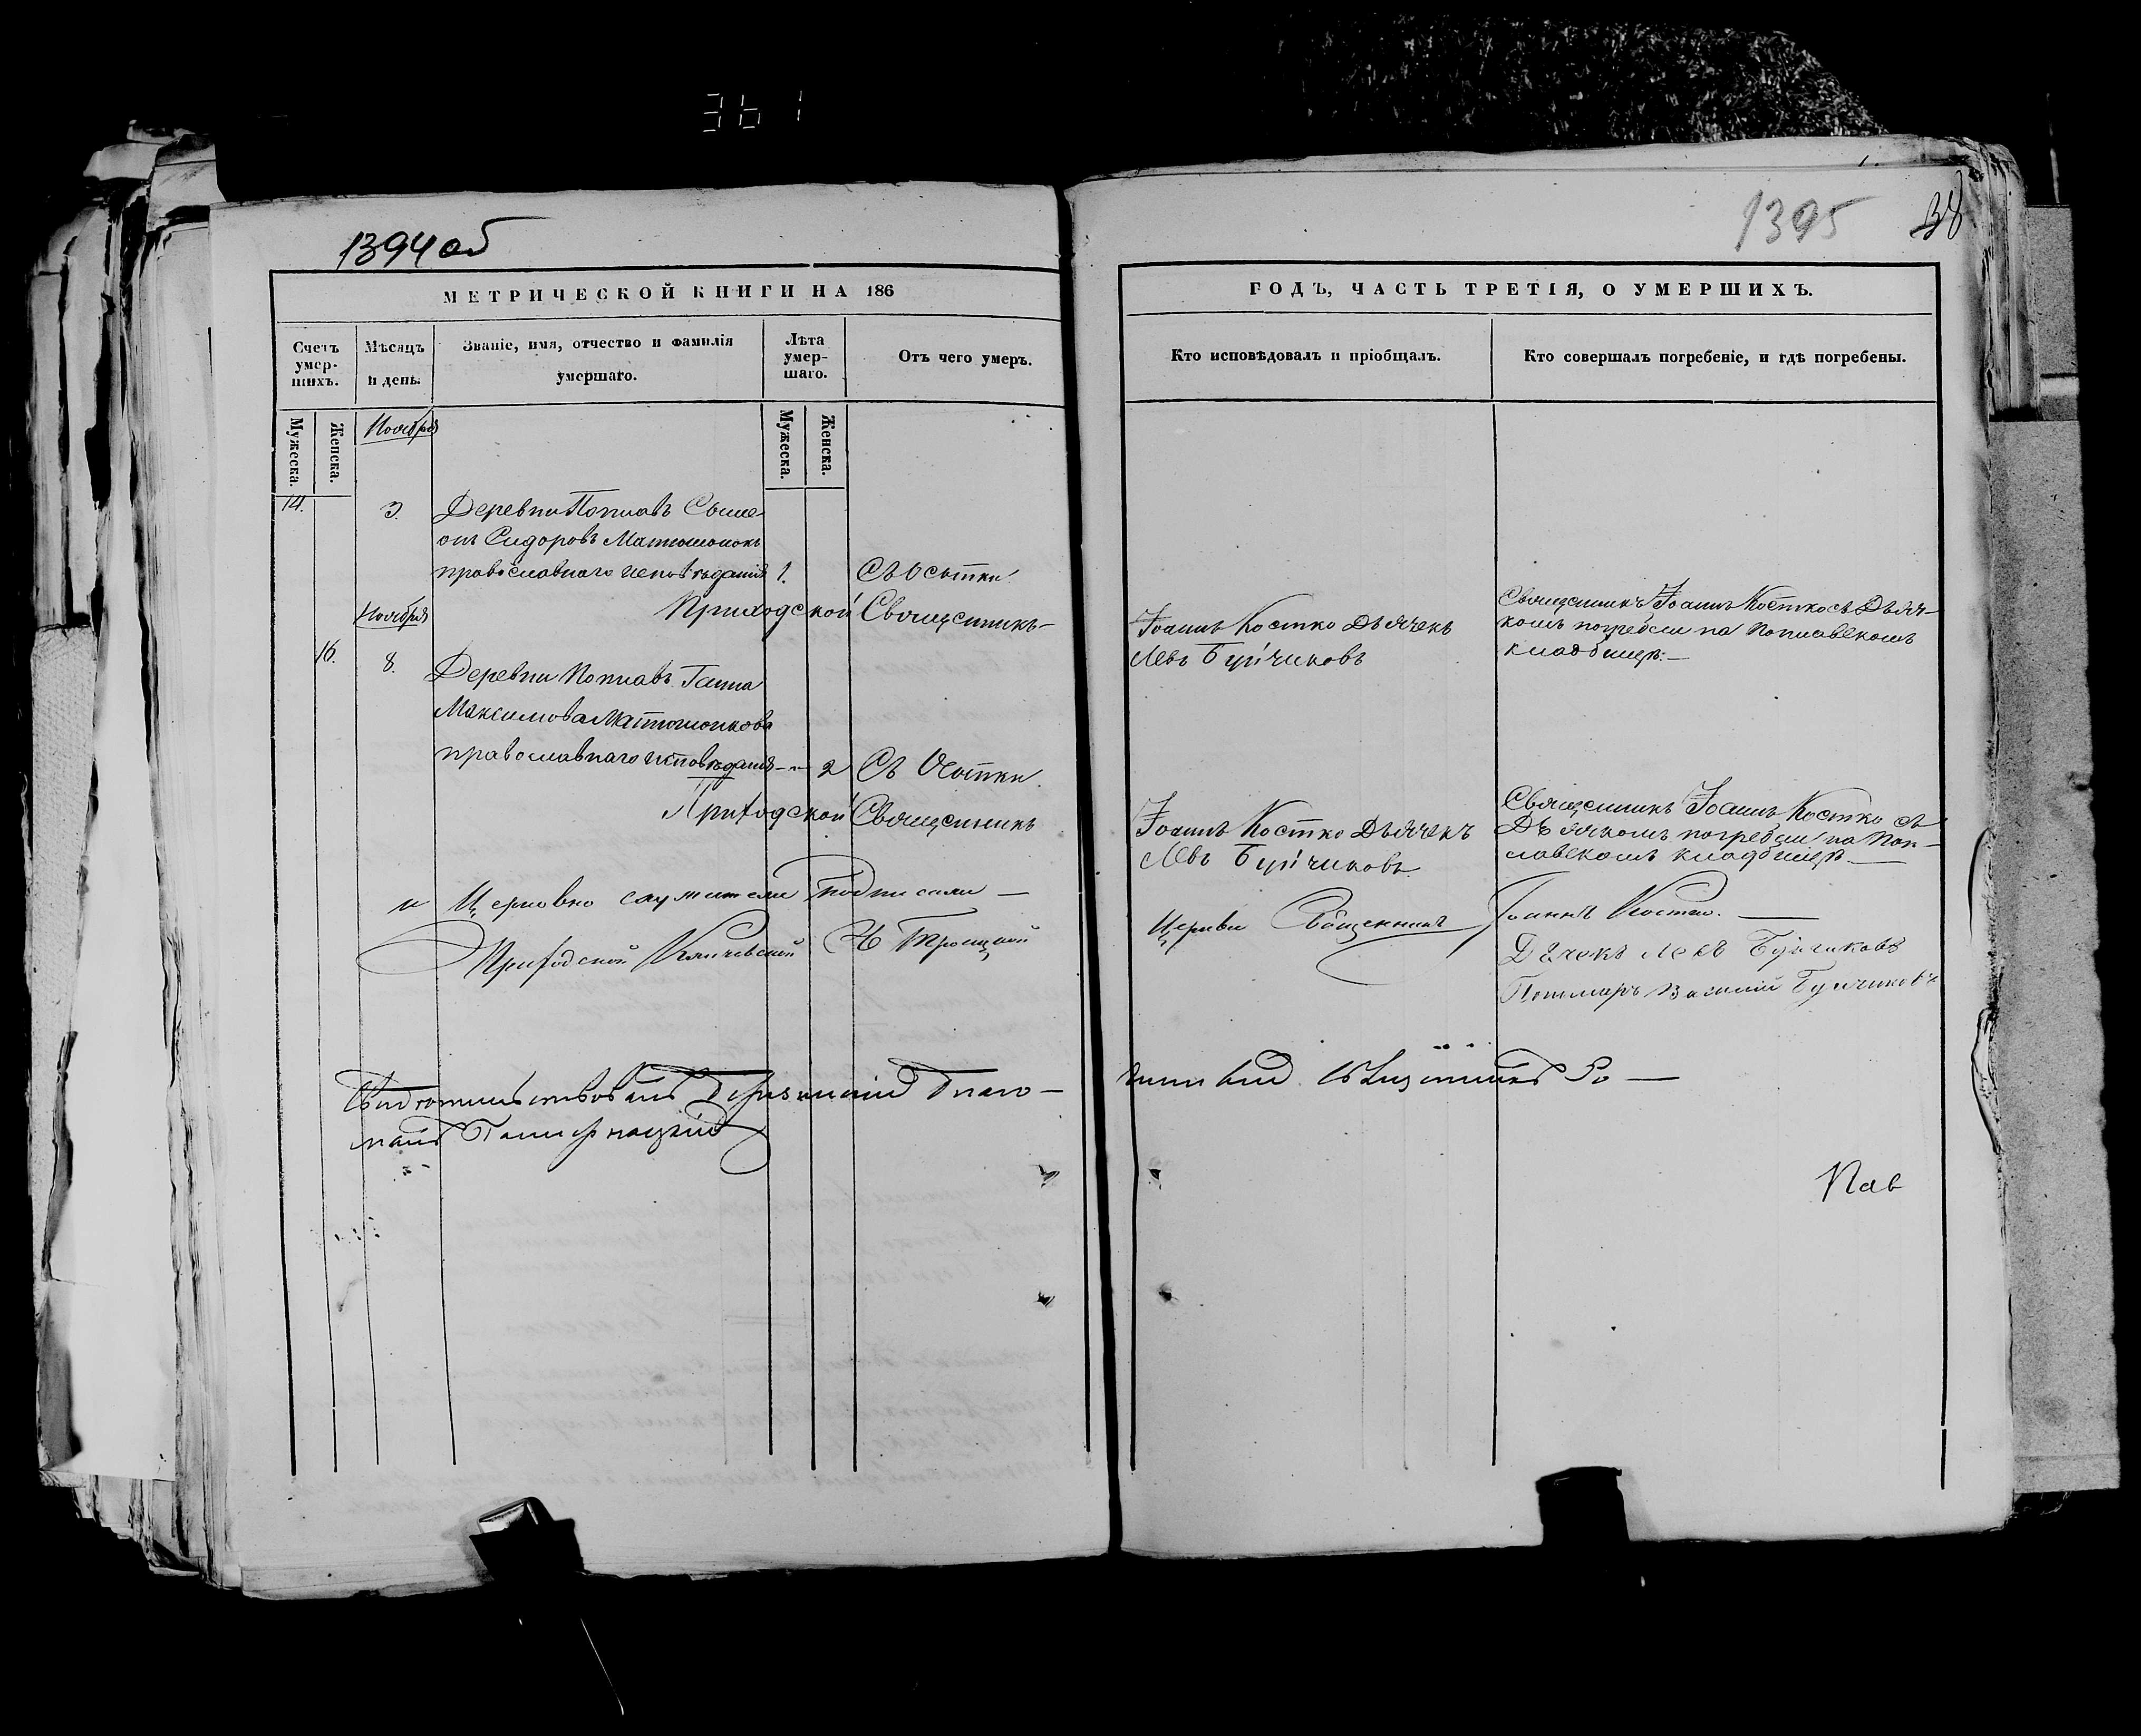 361
1394 об
1395
38
МЕТРИЧЕСКОЙ КНИГИ НА 186
Счетъ умер-шихъ.
Мѣсяцъ и день.
Званіе, имя, отчество и фамилія умершаго.
Лѣта умер-шаго.
Отъ чего умеръ.
Мужеска.
Женска.
Мужеска.
Женска.
Ноября
14.
3.
Деревни Поплавъ Симе-
онъ Сидоровъ Матюшонокъ
православнаго исповѣданія 1.
Съ Оспки
Ноября
Приходской Священникъ-
16.
8.
Деревни Поплавъ Ганна
Максимова Матюшонкова
православнаго исповѣданія - 2
Съ Оспки.
Приходской Священникъ
и Церковно служители подписали —
Приходской Кличевской С Троицкой
Свидѣтельствовалъ Березинскій Благо-
манъ
ГОДЪ, ЧАСТЬ ТРЕТІЯ, О УМЕРШИХЪ.
Кто исповѣдовалъ и пріобщалъ.
Кто совершалъ погребеніе, и гдѣ погребены.
Іоаннъ Костко Дьячекъ
Левъ Буйчиковъ
Священникъ Іоаннъ Костко съ Дьяч-
комъ погребли на Поплавскомъ
кладбищѣ:—
Іоаннъ Костко Дьячекъ
Левъ Буйчиковъ.
Священникъ Іоаннъ Костко съ
Дьячкомъ погребли на Поп-
лавскомъ кладбищѣ —
Церкви Священникъ Іоаннъ Костко. —
Дьячекъ Левъ Буйчиковъ
Пономарь Василій Буйчиковъ
чинный Священникъ Ро —
Пав